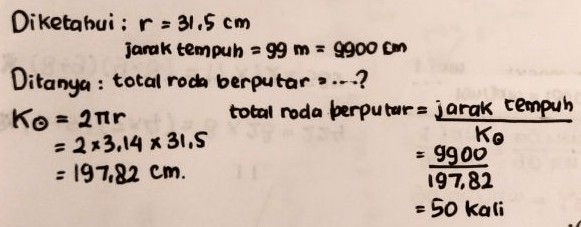 Diketahui : r = 31,5 cm
jarak tempuh = 99 m = 9900 cm
Ditanya : total roda berputar ....?
K⊙ = 2πr
= 2 × 3,14 × 31,5
= 197,82 cm.
total roda berputar = jarak tempuh
K⊙
= 9900
197,82
= 50 kali